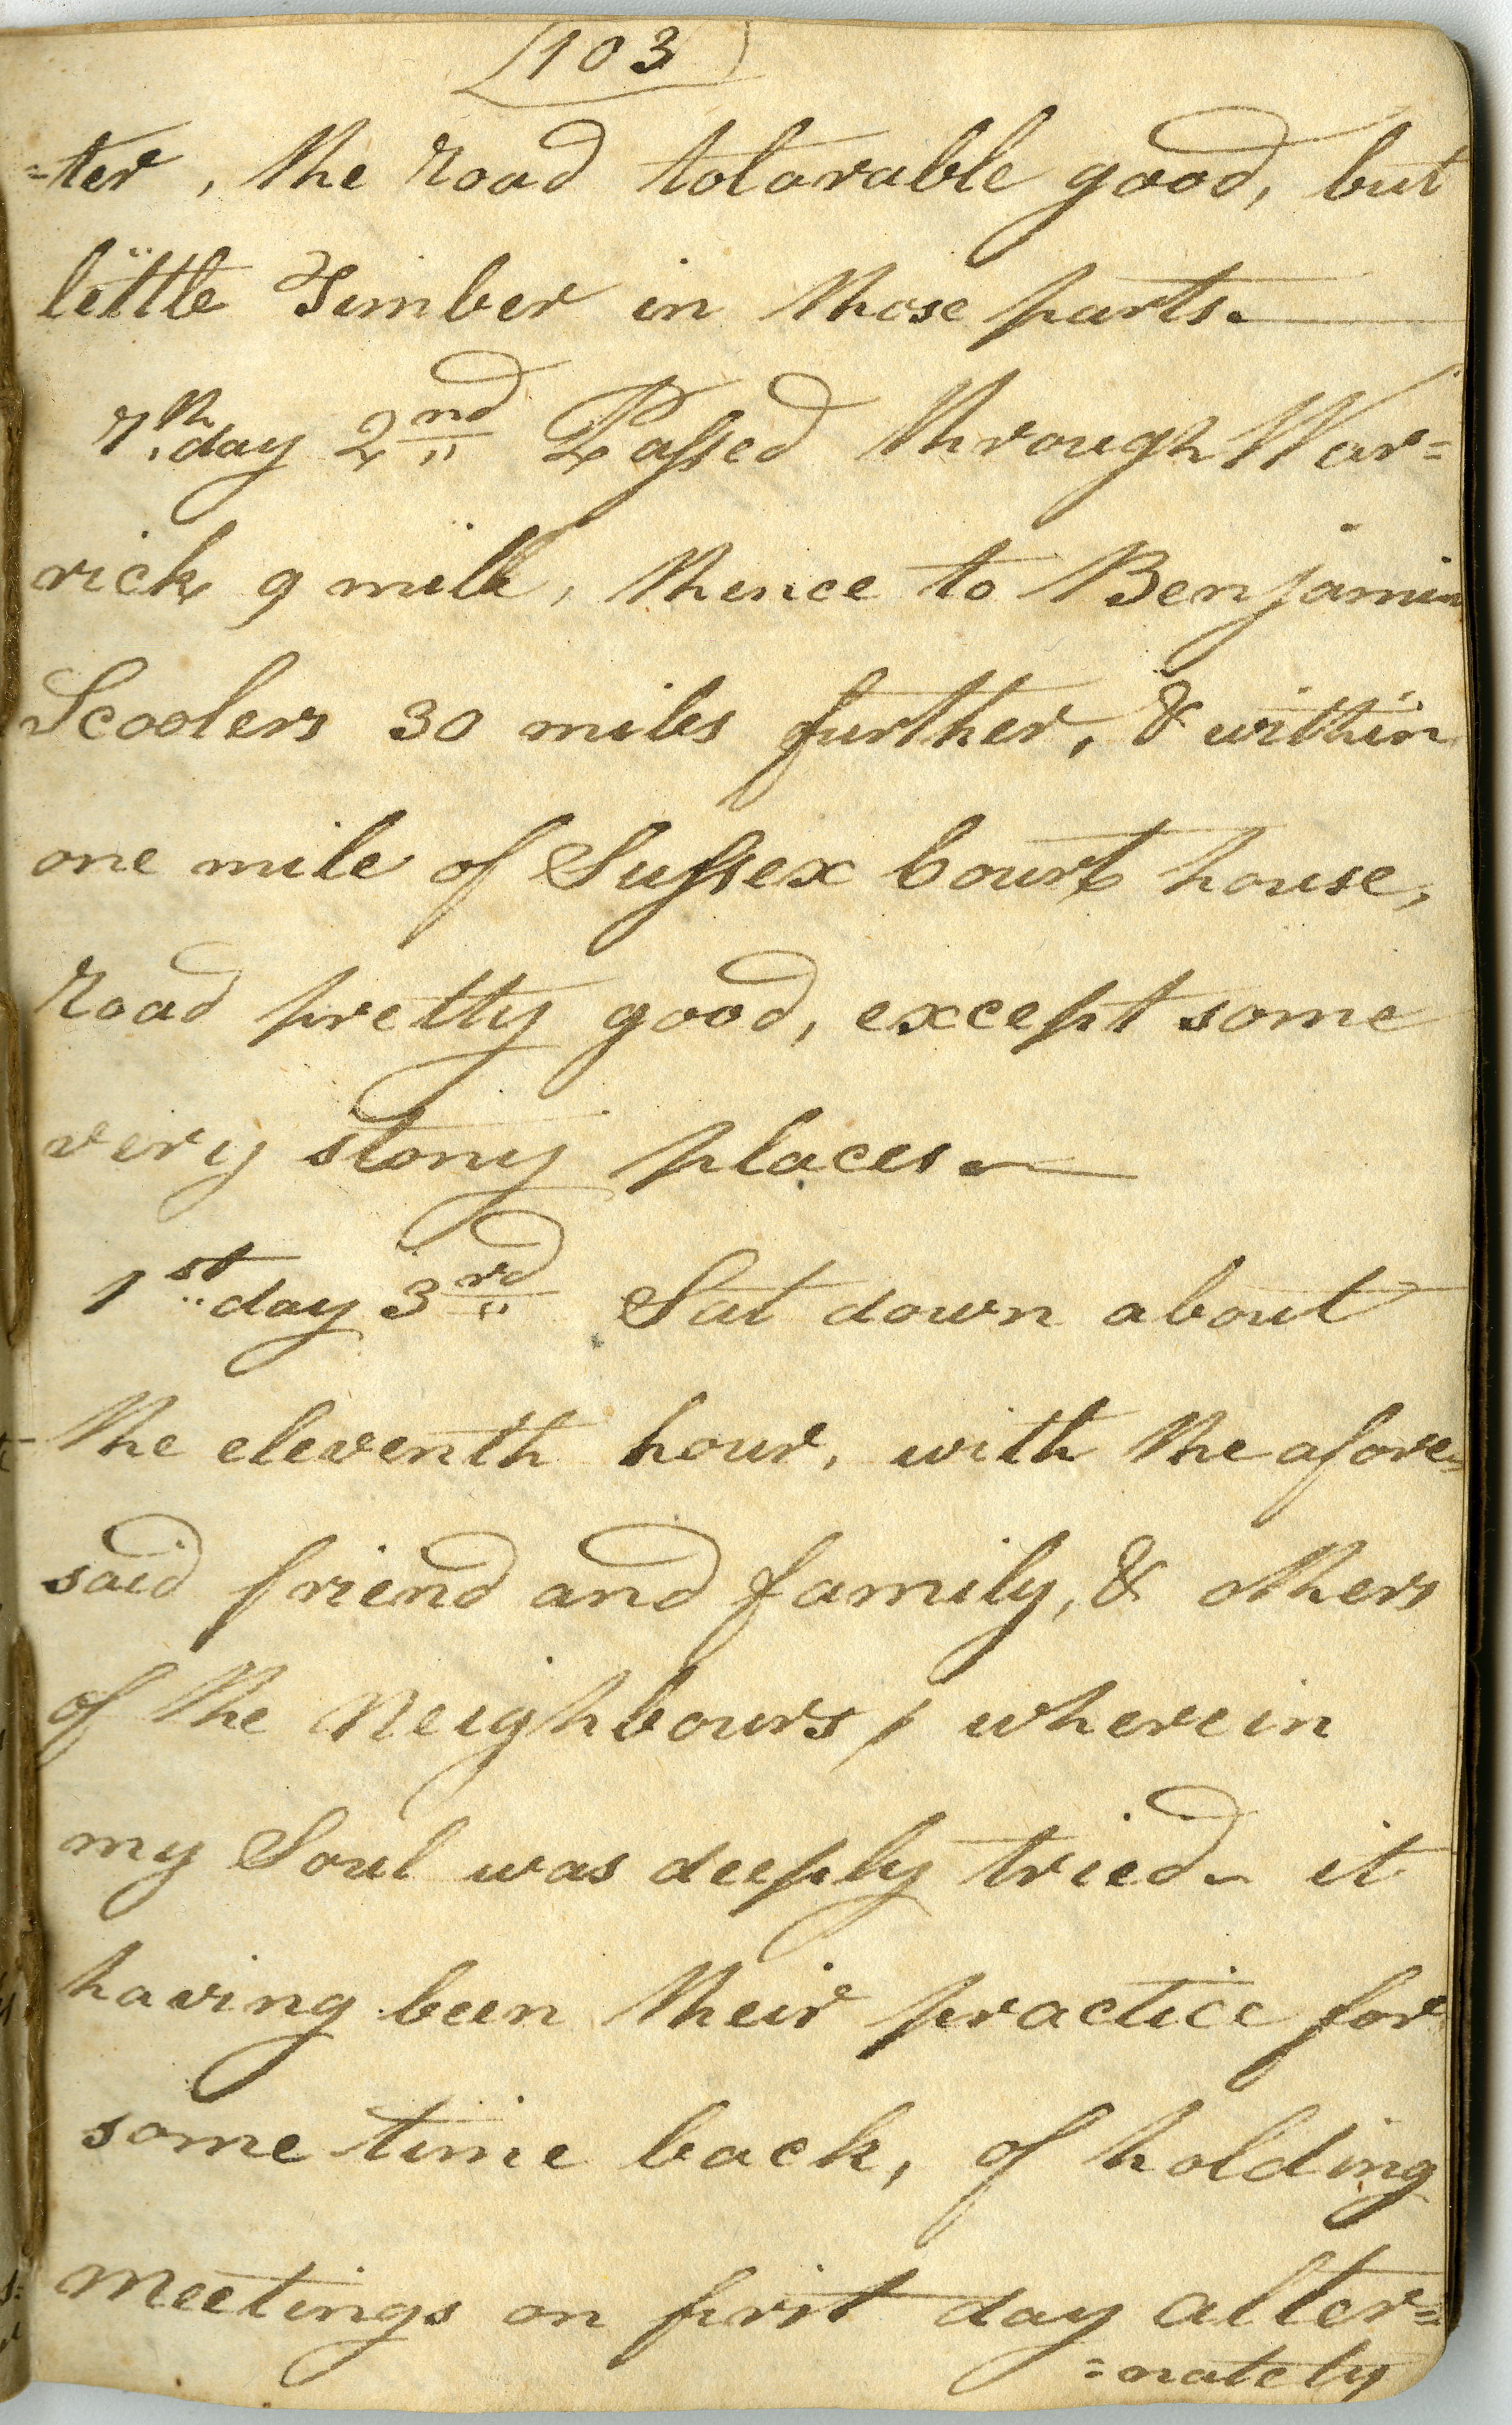 (103)
=ter, the road tolarable good, but
little Timber in those parts.
7th day 2nd Passed through War=
rick 9 mile, thence to Benjamin
Scoolers 30 miles further, & within
one mile of Sussex Court house,
Road pretty good, except some
very stony places.
1st day 3rd Sat down about
the eleventh hour, with the afore=
said friend and family, & others
of the Neighbours, wherein
my Soul was deeply tried - it
having been their practice for
some time back, of holding
Meetings on first day alter=
=nately